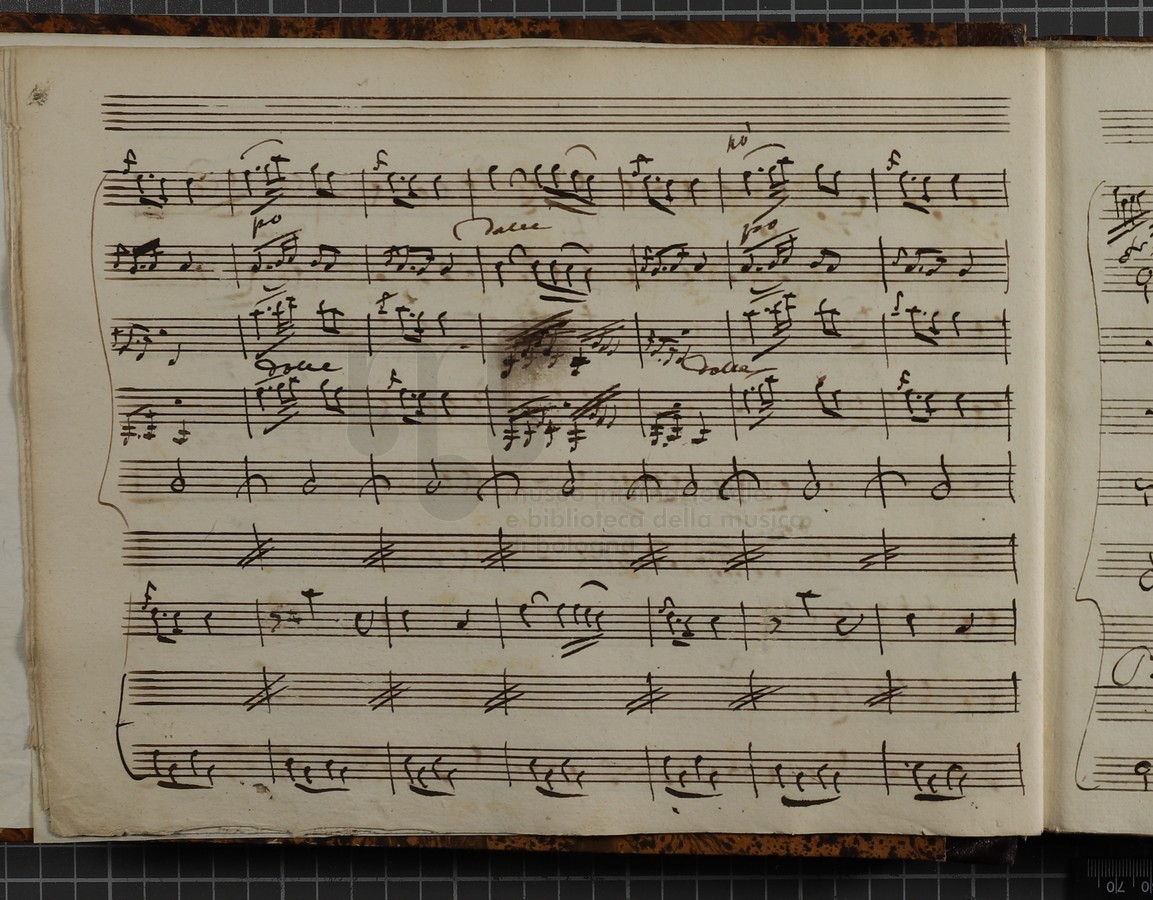 f f f po f
po Dolce po
f f
Dolce f Dolce f
museo internazionale
e biblioteca della musica
di bologna
f
70